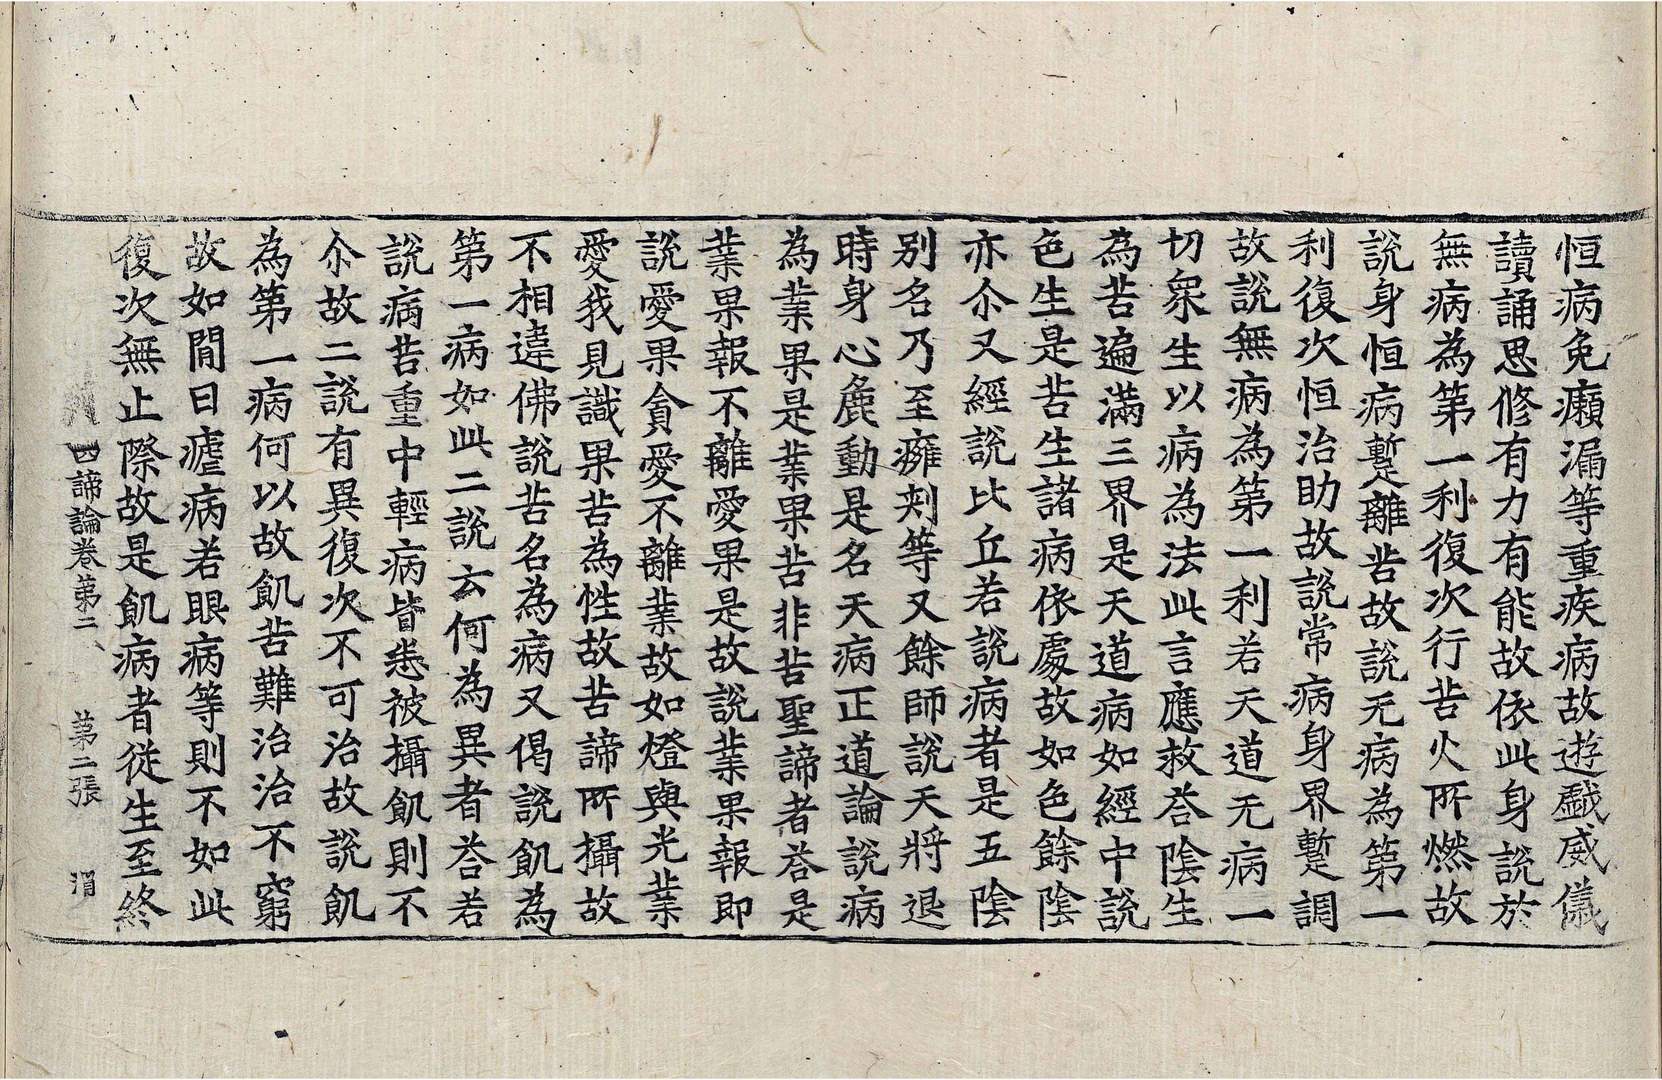 恒病免癩漏等重疾病故遊戱威儀
讀誦思修有力有能故依此身說於
無病為第一利復次行苦火所燃故
說身恒病蹔離苦故說无病為第一
利復次恒治助故說常病身界蹔調
故說無病為第一利若天道无病一
切衆生以病為法此言應救荅陰生
為苦遍滿三界是天道病如經中說
色生是苦生諸病依處故如色餘陰
亦尒又經說比丘若說病者是五陰
別名乃至癰刾等又餘師說天將退
時身心麁動是名天病正道論說病
為業果是業果苦非苦聖諦者荅是
業果報不離愛果是故說業果報即
說愛果貪愛不離業故如燈與光業
愛我見識果苦為性故苦諦所攝故
不相違佛說苦名為病又偈說飢為
第一病如此二說云何為異者荅若
說病苦重中輕病皆悉被攝飢則不
尒故二說有異復次不可治故說飢
為第一病何以故飢苦難治治不窮
故如閒日瘧病若眼病等則不如此
復次無止際故是飢病者從生至終
四諦論卷第二 第二張 渭